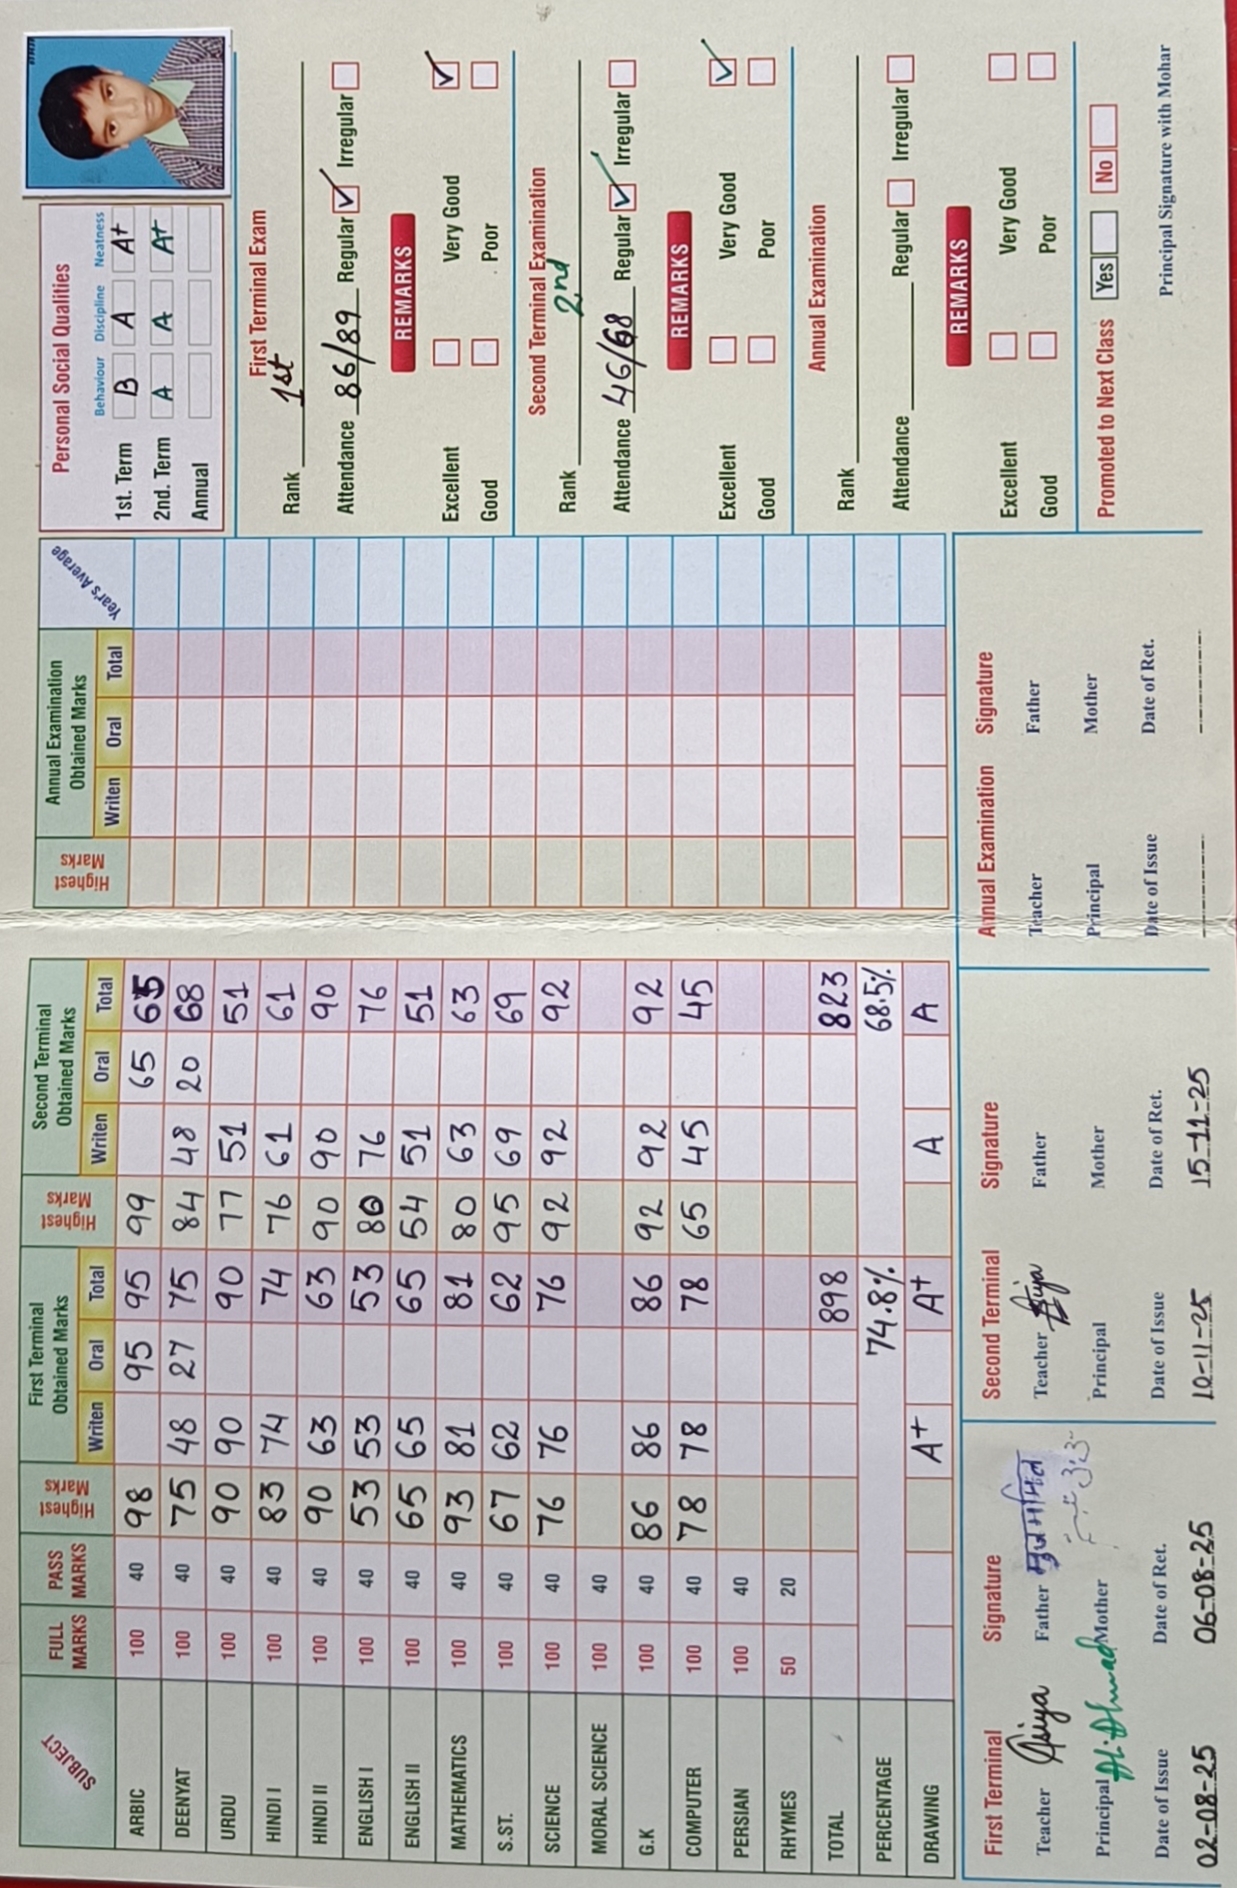 SUBJECT FULL MARKS PASS MARKS Highest Marks First Terminal Obtained Marks Writen Oral Total Highest Marks Second Terminal Obtained Marks Writen Oral Total Highest Marks Annual Examination Obtained Marks Writen Oral Total Year's Average
ARBIC 100 40 98 95 95 99 65 65
DEENYAT 100 40 75 48 27 75 84 48 20 68
URDU 100 40 90 90 90 77 51 51
HINDI I 100 40 83 74 74 76 61 61
HINDI II 100 40 90 63 63 90 90 90
ENGLISH I 100 40 53 53 53 80 76 76
ENGLISH II 100 40 65 65 65 54 51 51
MATHEMATICS 100 40 93 81 81 80 63 63
S.ST. 100 40 67 62 62 95 69 69
SCIENCE 100 40 76 76 76 92 92 92
MORAL SCIENCE 100 40
G.K 100 40 86 86 86 92 92 92
COMPUTER 100 40 78 78 78 65 45 45
PERSIAN 100 40
RHYMES 50 20
TOTAL 898 823
PERCENTAGE 74.8% 68.5%
DRAWING A+ A+ A A
First Terminal Signature
Teacher Asiya Father मुजम्मिल
Principal H.Ahmad Mother
Date of Issue Date of Ret.
02-08-25 06-08-25
Second Terminal Signature
Teacher Asiya Father
Principal Mother
Date of Issue Date of Ret.
10-11-25 15-11-25
Annual Examination Signature
Teacher Father
Principal Mother
Date of Issue Date of Ret.
Personal Social Qualities
Behaviour Discipline Neatness
1st. Term B A A+
2nd. Term A A A+
Annual
First Terminal Exam
Rank 1st
Attendance 86/89 Regular Irregular
REMARKS
Excellent Very Good
Good Poor
Second Terminal Examination
Rank 2nd
Attendance 46/68 Regular Irregular
REMARKS
Excellent Very Good
Good Poor
Annual Examination
Rank
Attendance Regular Irregular
REMARKS
Excellent Very Good
Good Poor
Promoted to Next Class Yes No
Principal Signature with Mohar